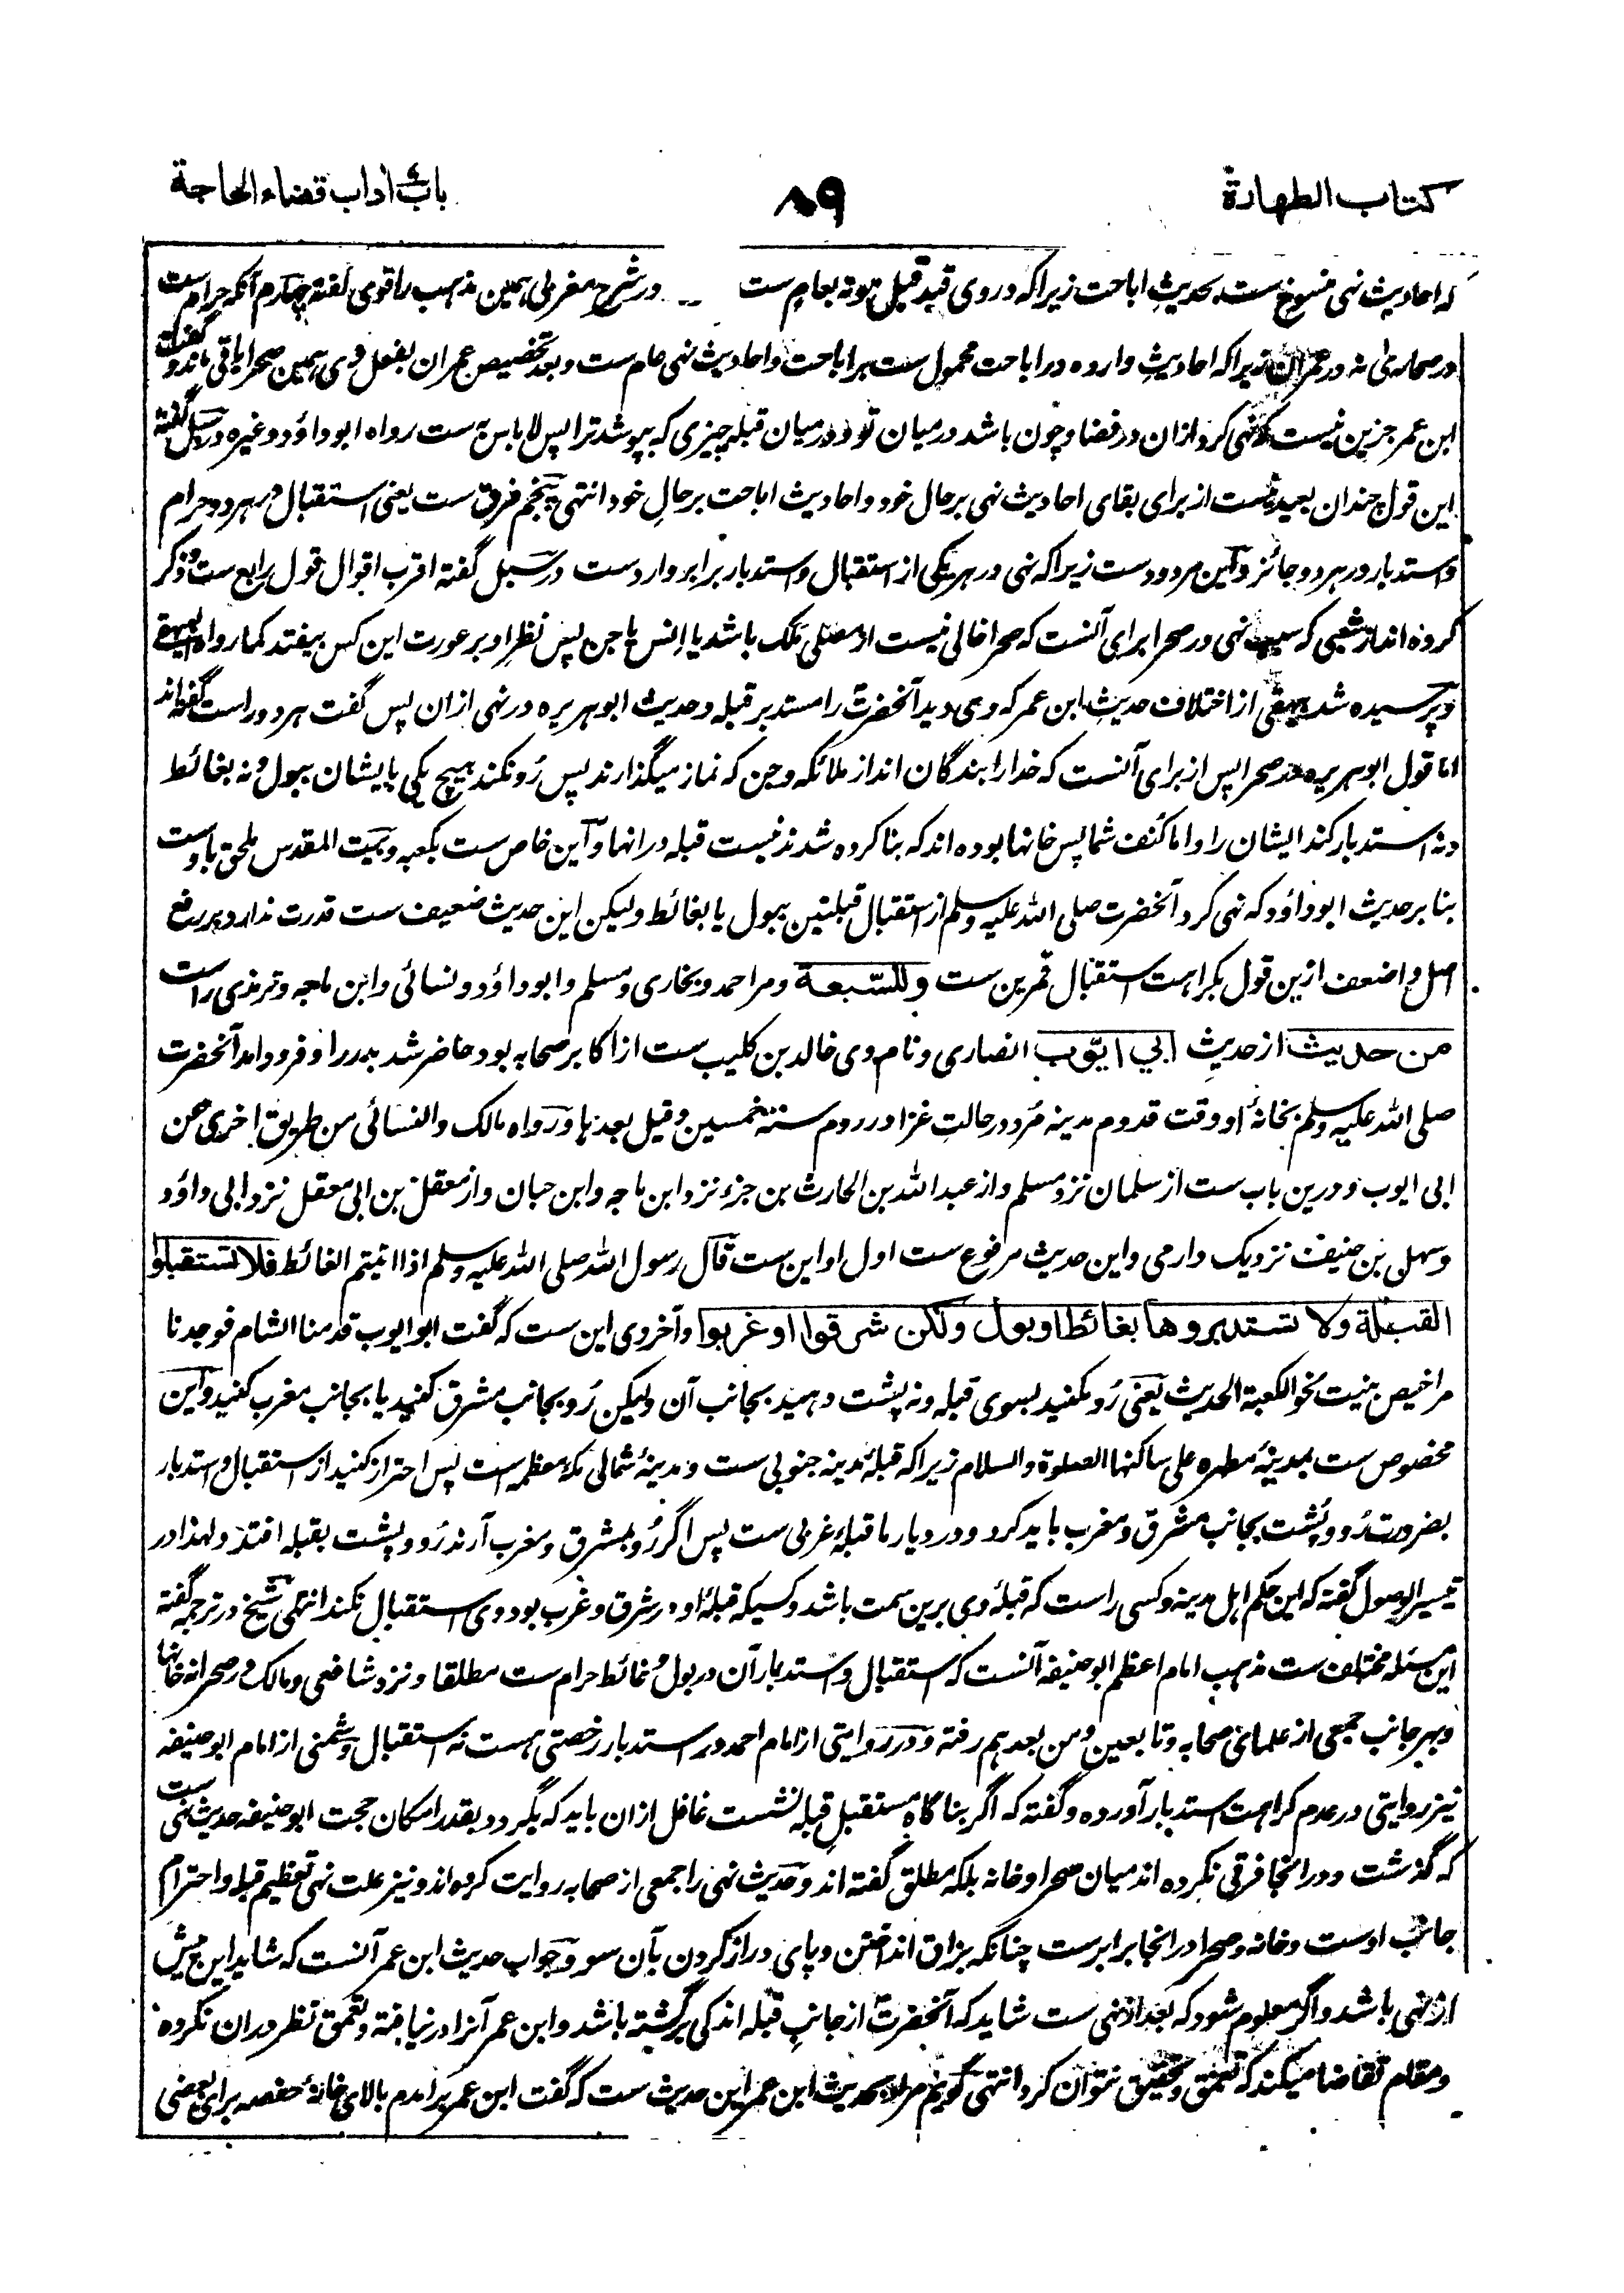 كتاب الطهارة
٨٩
باب آداب قضاء الحاجة
که احادیث نهی منسوخ ست بحدیث اباحت زیراکه در وی قید قبل موته بعام ست در شرح مغربی همین مذهب را قوی گفته چهارم آنکه حرام ست
در صحاری نه در عمران زیراکه احادیث وارده در اباحت محمول ست بر اباحت و احادیث نهی عام ست و بعد تخصیص عمران بفعل وی همین صحرا باقی ماند و گفت
ابن عمر جزین نیست که نهی کرد ازان در فضا و چون باشد درمیان تو و درمیان قبله چیزی که بپوشد ترا پس لاباس به ست رواه ابوداؤد وغیره در سبل گفته
این قول چندان بعید نیست از برای بقای احادیث نهی بر حال خود و احادیث اباحت بر حال خود انتهی پنجم فرق ست یعنی استقبال در هر دو حرام
و استدبار در هر دو جائز و این مردود ست زیراکه نهی در هر یکی از استقبال و استدبار برابر وارد ست در سبل گفته اقرب اقوال قول رابع ست و ذکر
کرده اند از شعبی که سبب نهی در صحرا برای آنست که صحرا خالی نیست از مصلی ملک باشد یا انس یا جن پس نظر او بر عورت این کس بیفتد کما رواه البیهقی
و پرسیده شد بیهقی از اختلاف حدیث ابن عمر که وی دید آنحضرت را مستدبر قبله و حدیث ابوهریره در نهی ازان پس گفت هر دو راست گفته اند
اما قول ابوهریره در صحرا پس از برای آنست که خدا را بندگان اند از ملائکه و جن که نماز میگذارند پس رو نکند هیچ یکی بایشان ببول و نه بغائط
و نه استدبار کند ایشان را و اما کنف شما پس خانها بوده اند که بنا کرده شدند نیست قبله در انها و این خاص ست بکعبه و بیت المقدس ملحق باوست
بنا بر حدیث ابوداؤد که نهی کرد آنحضرت صلی الله علیه وسلم از استقبال قبلتین ببول یا بغائط ولیکن این حدیث ضعیف ست قدرت ندارد بر رفع
اصل و اضعف ازین قول بکراهت استقبال قمرین ست وللسبعة و مر احمد و بخاری و مسلم و ابوداؤد و نسائی و ابن ماجه و ترمذی راست
من حدیث از حدیث ابي ايوب انصاری و نام وی خالد بن کلیب ست از اکابر صحابه بود حاضر شد بدر را و فرود امد آنحضرت
صلی الله علیه وسلم بخانهٔ او وقت قدوم مدینه مرد در حالت غزا در روم سنة خمسین و قیل بعدها و رواه مالک والنسائی من طریق اخری عن
ابی ایوب و درین باب ست از سلمان نزد مسلم و از عبدالله بن الحارث بن جزء نزد ابن ماجه و ابن حبان و از معقل بن ابی معقل نزد ابی داؤد
و سهل بن حنیف نزدیک دارمی و این حدیث مرفوع ست اول او این ست قال رسول الله صلی الله علیه وسلم اذا اتیتم الغائط فلا تستقبلوا
القبلة ولا تستدبروها بغائط او بول ولكن شرقوا او غربوا و آخر وی این ست که گفت ابو ایوب قدمنا الشام فوجدنا
مراحیض بنیت نحو الکعبة الحدیث یعنی رو مکنید بسوی قبله و نه پشت دهید بجانب آن ولیکن رو بجانب مشرق کنید یا بجانب مغرب کنید و این
مخصوص ست بمدینهٔ مطهره علی ساکنها الصلوة والسلام زیراکه قبلهٔ مدینه جنوبی ست و مدینهٔ شمالی مکهٔ معظمه است پس احتراز کنید از استقبال و استدبار
بضرورت رو و پشت بجانب مشرق و مغرب باید کرد و در دیار ما قبله غربی ست پس اگر رو بمشرق و مغرب آرند رو و پشت بقبله افتد و لهذا در
تیسیر الوصول گفته که این حکم اهل مدینه و کسی راست که قبلهٔ وی برین سمت باشد و کسیکه قبلهٔ او در شرق و غرب بود وی استقبال نکند انتهی شیخ در ترجمه گفته
این مسئله مختلف ست مذهب امام اعظم ابوحنیفه آنست که استقبال و استدبار آن در بول و غائط حرام ست مطلقا و نزد شافعی و مالک در صحرا نه خانها
و بهر جانب جمعی از علمای صحابه و تابعین و من بعدهم رفته و در روایتی از امام احمد در استدبار رخصتی هست نه استقبال و شمنی از امام ابوحنیفه
نیز روایتی در عدم کراهت استدبار آورده و گفته که اگر بناگاه مستقبل قبله نشست غافل ازان باید که بگردد بقدر امکان حجت ابوحنیفه حدیث نهی ست
که گذشت و در انجا فرقی نکرده اند میان صحرا و خانه بلکه مطلق گفته اند و حدیث نهی را جمعی از صحابه روایت کرده اند و نیز علت نهی تعظیم قبله و احترام
جانب اوست و خانه و صحرا در انجا برابرست چنانکه بزاق انداختن و پای دراز کردن بآن سو و جواب حدیث ابن عمر آنست که شاید این پیش
از نهی باشد و اگر معلوم شود که بعد از نهی ست شاید که آنحضرت از جانب قبله اندکی برگشته باشد و ابن عمر آنرا در نیافته و تعمق نظر دران نکرده
و مقام تقاضا میکند که تعمق و تحقیق نتوان کرد انتهی گویم مراد بحدیث ابن عمر این حدیث ست که گفت ابن عمر برآمدم بالای خانهٔ حفصه برای بعضی